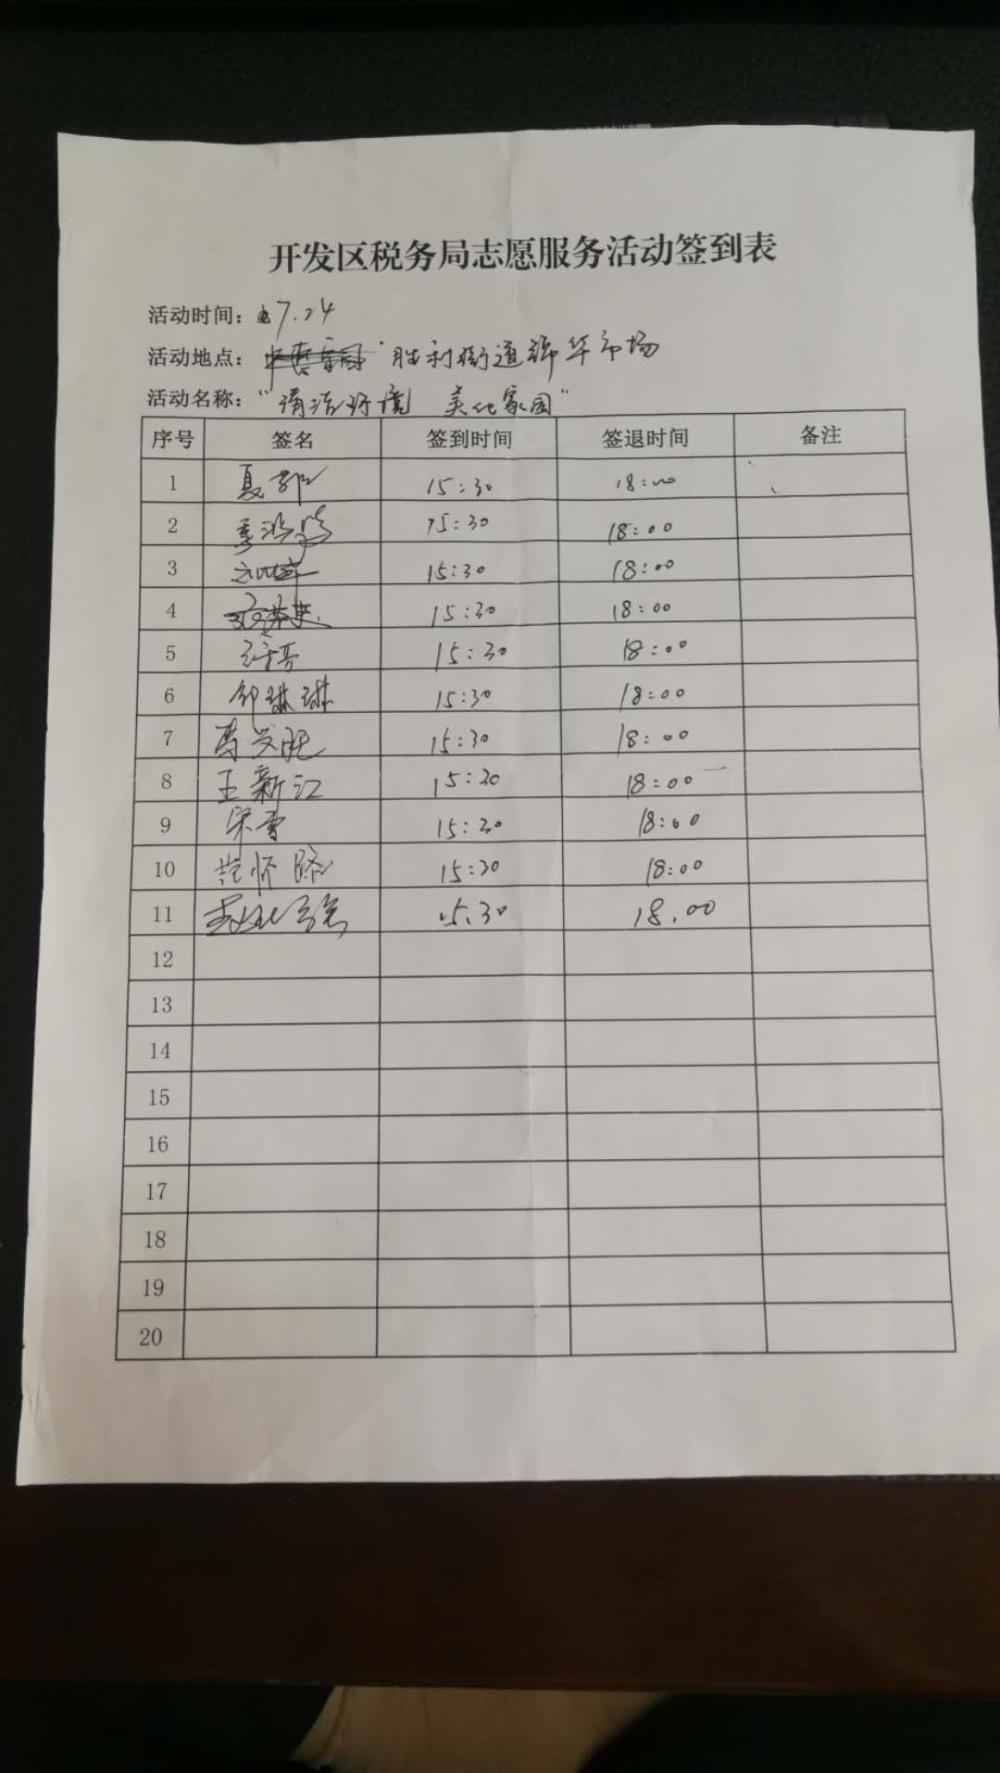 开发区税务局志愿服务活动签到表
活动时间：7.24
活动地点：胜利街道锦华市场
活动名称："清洁环境 美化家园"
序号 签名 签到时间 签退时间 备注
1 夏 15:30 18:00
2 15:30 18:00
3 15:30 18:00
4 15:30 18:00
5 15:30 18:00
6 邹琳琳 15:30 18:00
7 15:30 18:00
8 王新江 15:30 18:00
9 宋雪 15:30 18:00
10 范怀 15:30 18:00
11 15.30 18.00
12
13
14
15
16
17
18
19
20